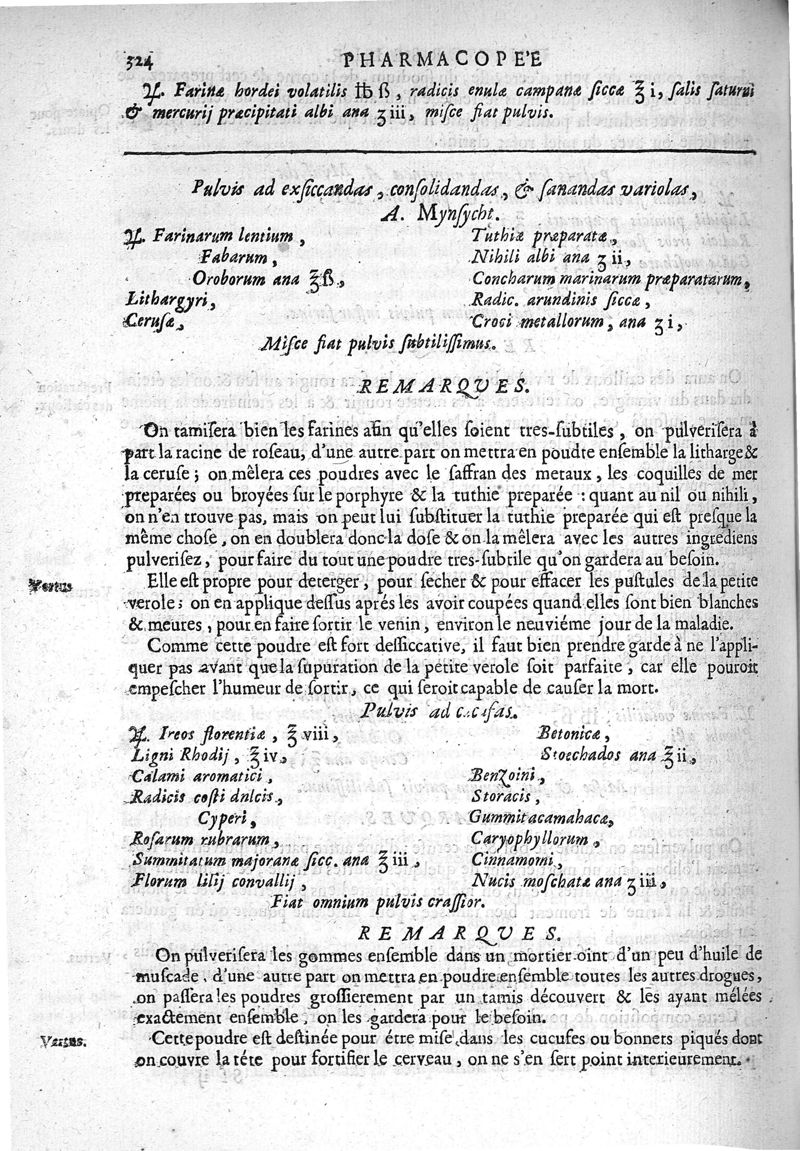 324 PHARMACOPE'E
℞. Farinæ hordei volatilis ℔ ß, radicis enulæ campanæ ſiccæ ℥ i, ſalis ſaturni
& mercurij præcipitati albi ana ʒ iii, miſce fiat pulvis.
Pulvis ad exſiccandas, conſolidandas, & ſanandas variolas,
A. Mynſycht.
℞. Farinarum lentium,
Fabarum,
Oroborum ana ℥ß,
Lithargyri,
Ceruſæ,
Tuthiæ præparatæ,
Nihili albi ana ʒ ii,
Concharum marinarum præparatarum,
Radic. arundinis ſiccæ,
Croci metallorum, ana ʒ i,
Miſce fiat pulvis ſubtiliſſimus.
REMARQVES.
On tamiſera bien les farines afin qu'elles ſoient tres-ſubtiles, on pulveriſera à
part la racine de roſeau, d'une autre part on mettra en poudte enſemble la litharge &
la ceruſe; on mêlera ces poudres avec le ſaffran des metaux, les coquilles de mer
preparées ou broyées ſur le porphyre & la tuthie preparée: quant au nil ou nihili,
on n'en trouve pas, mais on peut lui ſubſtituer la tuthie preparée qui eſt preſque la
même choſe, on en doublera donc la doſe & on la mêlera avec les autres ingrediens
pulveriſez, pour faire du tout une poudre tres-ſubtile qu'on gardera au beſoin.
Vertus
Elle eſt propre pour deterger, pour ſecher & pour effacer les puſtules de la petite
verole; on en applique deſſus aprés les avoir coupées quand elles ſont bien blanches
& meures, pour en faire ſortir le venin, environ le neuviéme jour de la maladie.
Comme cette poudre eſt fort deſſiccative, il faut bien prendre garde à ne l'appli-
quer pas avant que la ſupuration de la petite verole ſoit parfaite, car elle pouroit
empeſcher l'humeur de ſortir, ce qui ſeroit capable de cauſer la mort.
Pulvis ad
℞. Ireos florentiæ, ℥ viii,
Ligni Rhodij, ℥ iv,
Calami aromatici,
Radicis coſti dulcis,
Cyperi,
Roſarum rubrarum,
Summitatum majoranæ ſicc. ana ℥ iii,
Florum lilij convallij,
Betonicæ,
Stoechados ana ℥ ii,
Benzoini,
Storacis,
Gummi tacamahacæ,
Caryophyllorum,
Cinnamomi,
Nucis moſchatæ ana ʒ iii,
Fiat omnium pulvis craſſior.
REMARQVES.
On pulveriſera les gommes enſemble dans un mortier oint d'un peu d'huile de
muſcade, d'une autre part on mettra en poudre enſemble toutes les autres drogues,
on paſſera les poudres groſſierement par un tamis découvert & les ayant mélées
exactement enſemble, on les gardera pour le beſoin.
Vertus.
Cette poudre eſt deſtinée pour étre miſe dans les cucufes ou bonnets piqués dont
on couvre la téte pour fortifier le cerveau, on ne s'en ſert point interieurement.